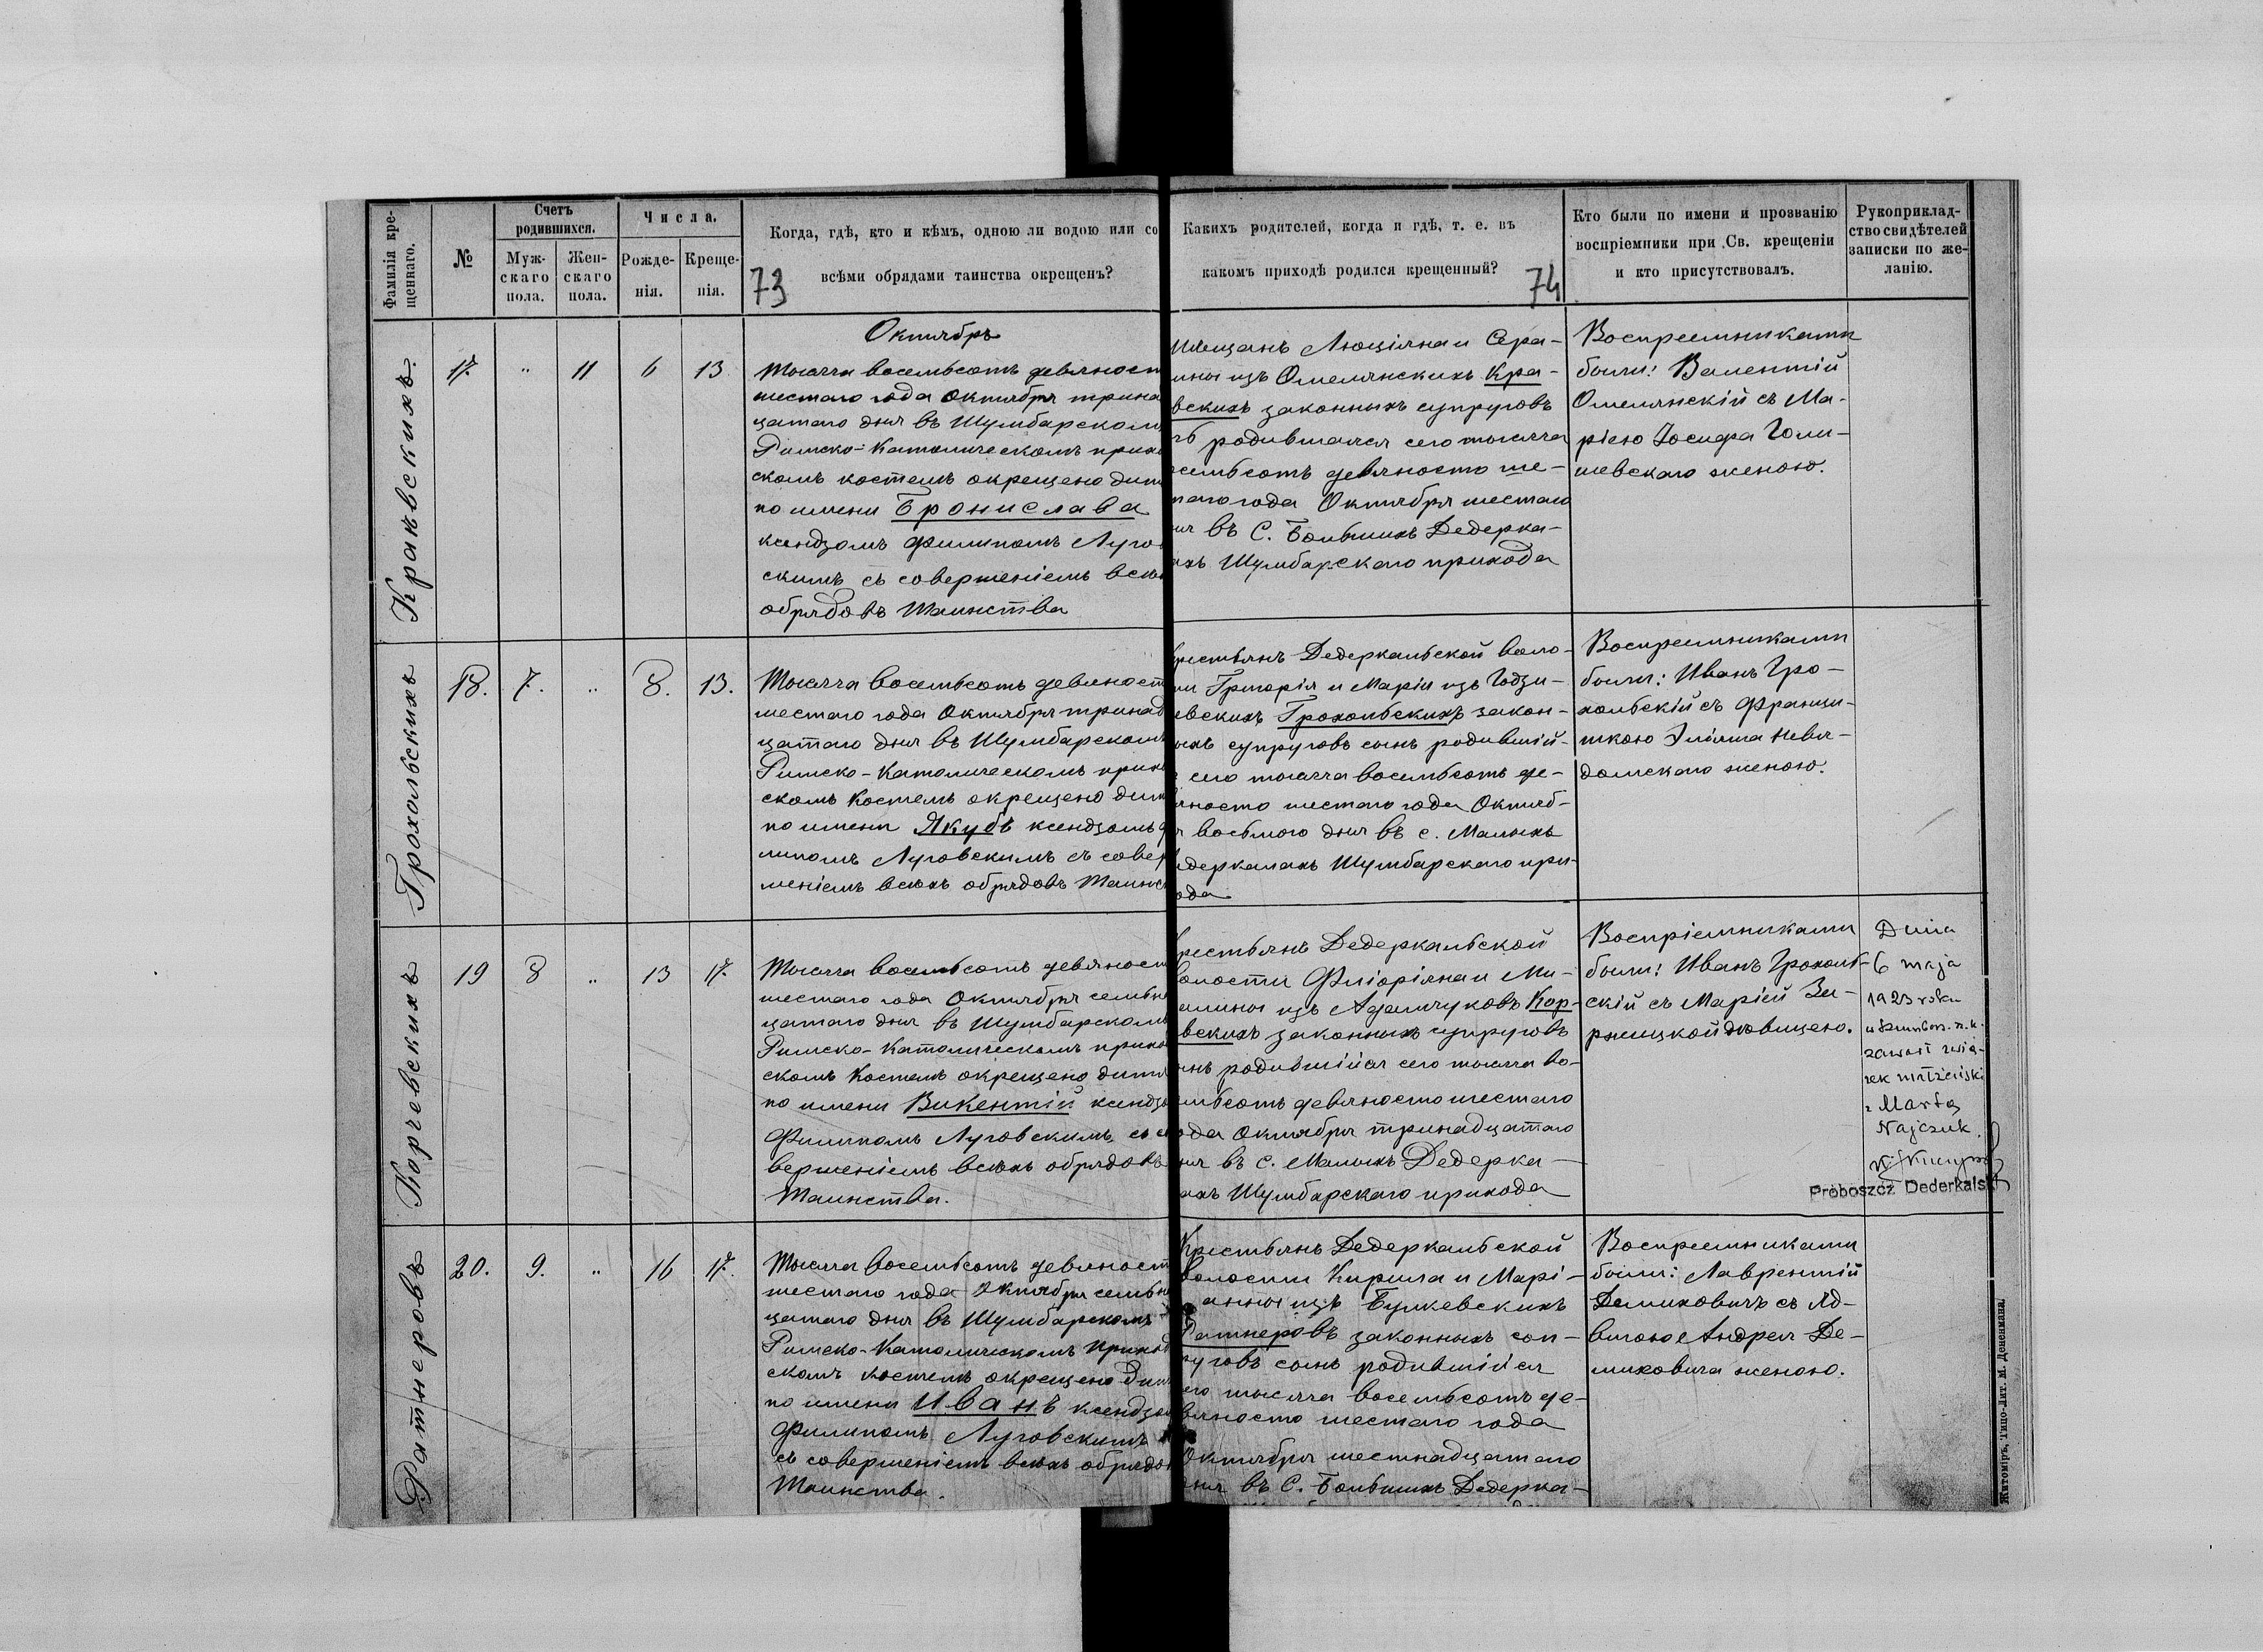 Фамилія кре-
щеннаго.
№
Счетъ
родившихся.
Муж-
скаго
пола.
Жен-
скаго
пола.
Числа.
Рожде-
нія.
Креще-
нія.
Когда, гдѣ, кто и кѣмъ, одною ли водою или со
всѣми обрядами таинства окрещенъ?
73
Какихъ родителей, когда и гдѣ, т. е. въ
какомъ приходѣ родился крещенный?
74
Кто были по имени и прозванію
воспріемники при Св. крещеніи
и кто присутствовалъ.
Рукоприклад-
ство свидѣтелей
записки по же-
ланію.
Краквскихъ.
17. " 11 6 13
Октябрь
Тысяча восемьсотъ девяност
шестаго года Октября трина
цатаго дня въ Шумбарском
Римско-Католическомъ прихо
скомъ костелѣ окрещено дит
по имени Бронислава
ксендзомъ Филипомъ Луго
скимъ съ совершеніемъ всѣх
обрядовъ Таинства
мѣщанъ Люціяна и Сера-
ины изъ Омелянскихъ Кра-
вскихъ законныхъ супруговъ
родившаяся сего тысяча
семьсотъ девяносто ше-
таго года Октября шестаго
въ С. Большихъ Дедерка-
ахъ Шумбарскаго прихода
Воспреемниками
были: Валентій
Омелянскій съ Ма-
ріею Іосифа Голи-
шевскаго женою.
Грохольскихъ
18. 7. " 8. 13.
Тысяча восемьсотъ девяност
шестаго года Октября тринад
цатаго дня въ Шумбарскомъ
Римско-Католическомъ прихо
скомъ Костелѣ окрещено дит
по имени Якубъ ксендзомъ ф
липомъ Луговскимъ съ совер
шеніемъ всѣхъ обрядовъ Таинс
рестьянъ Дедеркальской воло-
ти Григорія и Маріи изъ Годзи-
евскихъ Грохольскихъ закон-
ыхъ супруговъ сынъ родившій-
сего тысяча восемьсотъ де-
яносто шестаго года Октяб-
восьмого дня въ с. Малыхъ
едеркалахъ Шумбарскаго при-
ода
Воспреемниками
были: Иванъ Гро-
хольскій съ Франци-
шкою Эліяша Невя-
домскаго женою.
Корчевскихъ
19 8 " 13 17.
Тысяча восемьсотъ девяност
шестаго года Октября семьна
цатаго дня въ Шумбарскомъ
Римско-Католическомъ прихо
скомъ Костелѣ окрещено дитя
по имени Викентій ксендз
Филипомъ Луговскимъ съ со
вершеніемъ всѣхъ обрядовъ
Таинства.
рестьянъ Дедеркальской
олости Флоріяна и Ми-
алины изъ Адамчуковъ Кор-
вскихъ законныхъ супруговъ
ынъ родившійся сего тысяча во-
емьсотъ девяносто шестаго
ода Октября тринадцатаго
ня въ с. Малыхъ Дедерка-
ахъ Шумбарскаго прихода
Воспріемниками
были: Иванъ Грохоль-
скій съ Маріей За-
ржицкой дѣвицею.
Dnia
6 maja
1923 roku
zawarł zwią-
zek małżeński
z Martą
Najczuk.
Proboszcz Dederkalski
Ратнеровъ
20. 9. " 16 17.
Тысяча восемьсотъ девяност
шестаго года Октября семьна
цатаго дня въ Шумбарскомъ
Римско-Католическомъ приход
скомъ костелѣ окрещено дит
по имени Иванъ ксендзом
Филипомъ Луговскимъ
съ совершеніемъ всѣхъ обрядов
Таинства.
Крестьянъ Дедеркальской
волости Кирила и Марі-
анны изъ Булкевскихъ
Ратнеровъ законныхъ соп-
руговъ сынъ родившійся
его тысяча восемьсотъ де-
вяносто шестаго года
Октября шестнадцатаго
дня въ С. Большихъ Дедерка-
Воспреемниками
были: Лаврентій
Демиховичъ съ Яд-
вигою Андрея Де-
миховича женою.
Житоміръ, Типо-Лит. М. Дененмана.